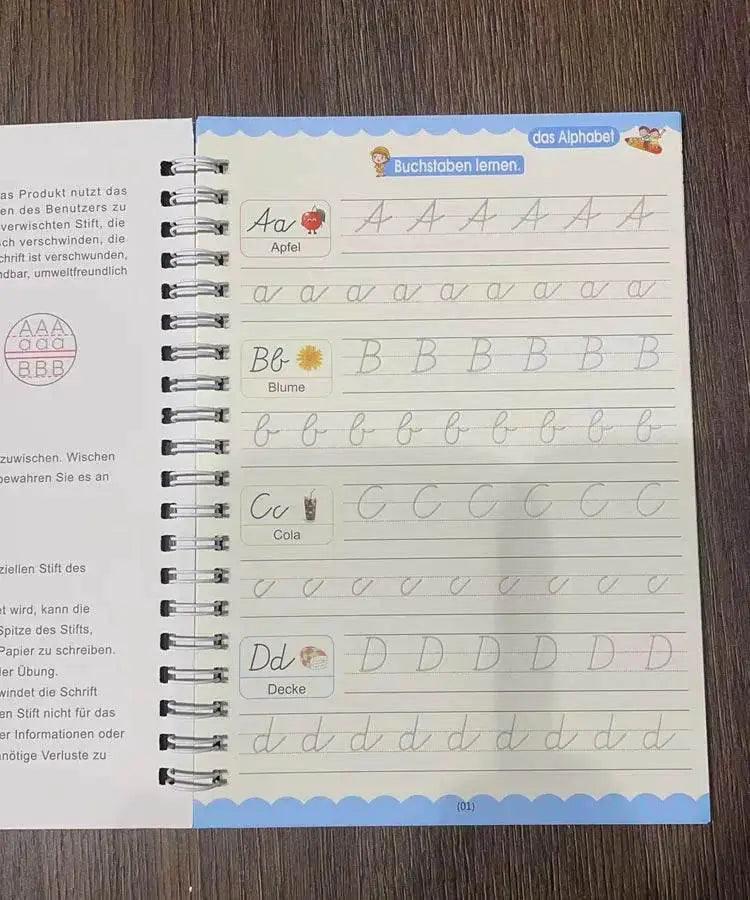 as Produkt nutzt das
en des Benutzers zu
verwischten Stift, die
ch verschwinden, die
chrift ist verschwunden,
ndbar, umweltfreundlich
AAA
aaa
BBB
zuwischen. Wischen
bewahren Sie es an
ziellen Stift des
et wird, kann die
Spitze des Stifts,
Papier zu schreiben.
er Übung.
windet die Schrift
en Stift nicht für das
er Informationen oder
nötige Verluste zu
das Alphabet
Buchstaben lernen.
Aa A A A A A A
Apfel
a a a a a a a a a
Bb B B B B B B
Blume
b b b b b b b b b
Cc C C C C C C
Cola
c c c c c c c c c
Dd D D D D D D
Decke
d d d d d d d d d
(01)